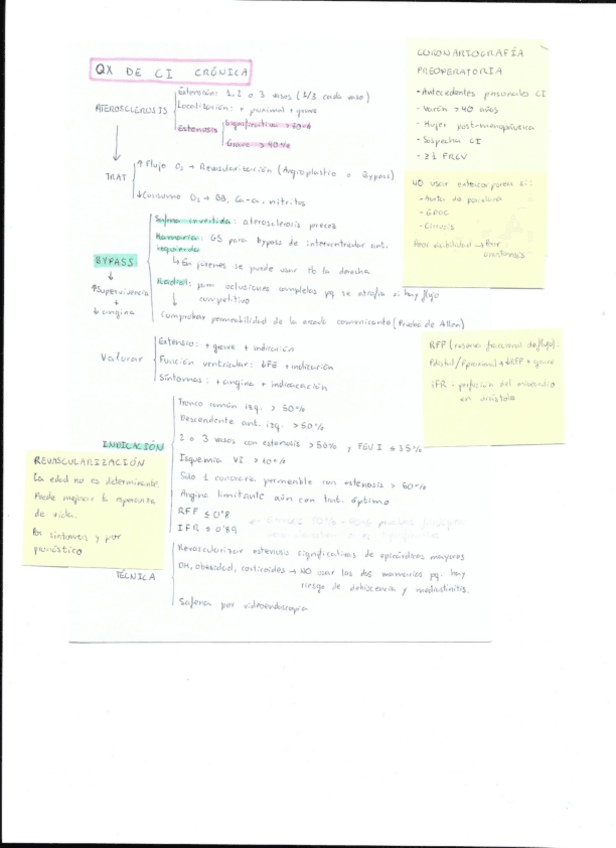 QX DE CI CRÓNICA
ATEROSCLEROSIS
Extensión: 1, 2 o 3 vasos (1/3 cada uno)
Localización: + proximal + grave
Estenosis
Significativa > 50%
Grave > 70%
TRAT
↑ Flujo O2 → Revascularización (Angioplastia o Bypass)
↓ Consumo O2 → BB, Ca-a, nitritos
BYPASS
↑ Supervivencia
↓ angina
Safena invertida: aterosclerosis precoz
Mamaria izquierda: GS para bypass de interventricular ant.
↳ En jóvenes se puede usar tb la derecha
Radial: para oclusiones completas pq se atrofia si hay flujo
competitivo
Comprobar permeabilidad de la arcada comunicante (Prueba de Allen)
Valorar
Extensión: + grave + indicación
Función ventricular: ↓FE + indicación
Síntomas: + angina + indicación
INDICACIÓN
Tronco común izq. > 50%
Descendente ant. izq. > 50%
2 o 3 vasos con estenosis > 50% y FEVI ≤ 35%
Isquemia VI > 10%
Solo 1 coronaria permeable con estenosis > 50%
Angina limitante aún con trat. óptimo
RFF ≤ 0'8
IFR ≤ 0'89
TÉCNICA
Revascularizar estenosis significativas de epicárdicos mayores
DM, obesidad, corticoides → NO usar las dos mamarias pq. hay
riesgo de dehiscencia y mediastinitis.
Safena por videoendoscopia
CORONARIOGRAFÍA
PREOPERATORIA
- Antecedentes personales CI
- Varón > 40 años
- Mujer post-menopáusica
- Sospecha CI
- ≥1 FRCV
NO usar
- Aorta de porcelana
- EPOC
- Cirrosis
Peor visibilidad → Peor
RFF (reserva fraccional de flujo):
Pdistal/Pproximal → ↓RFF + grave
iFR - perfusión del miocardio
en diástole
REVASCULARIZACIÓN
La edad no es determinante.
Puede mejorar la esperanza
de vida.
En síntomas y por
pronóstico